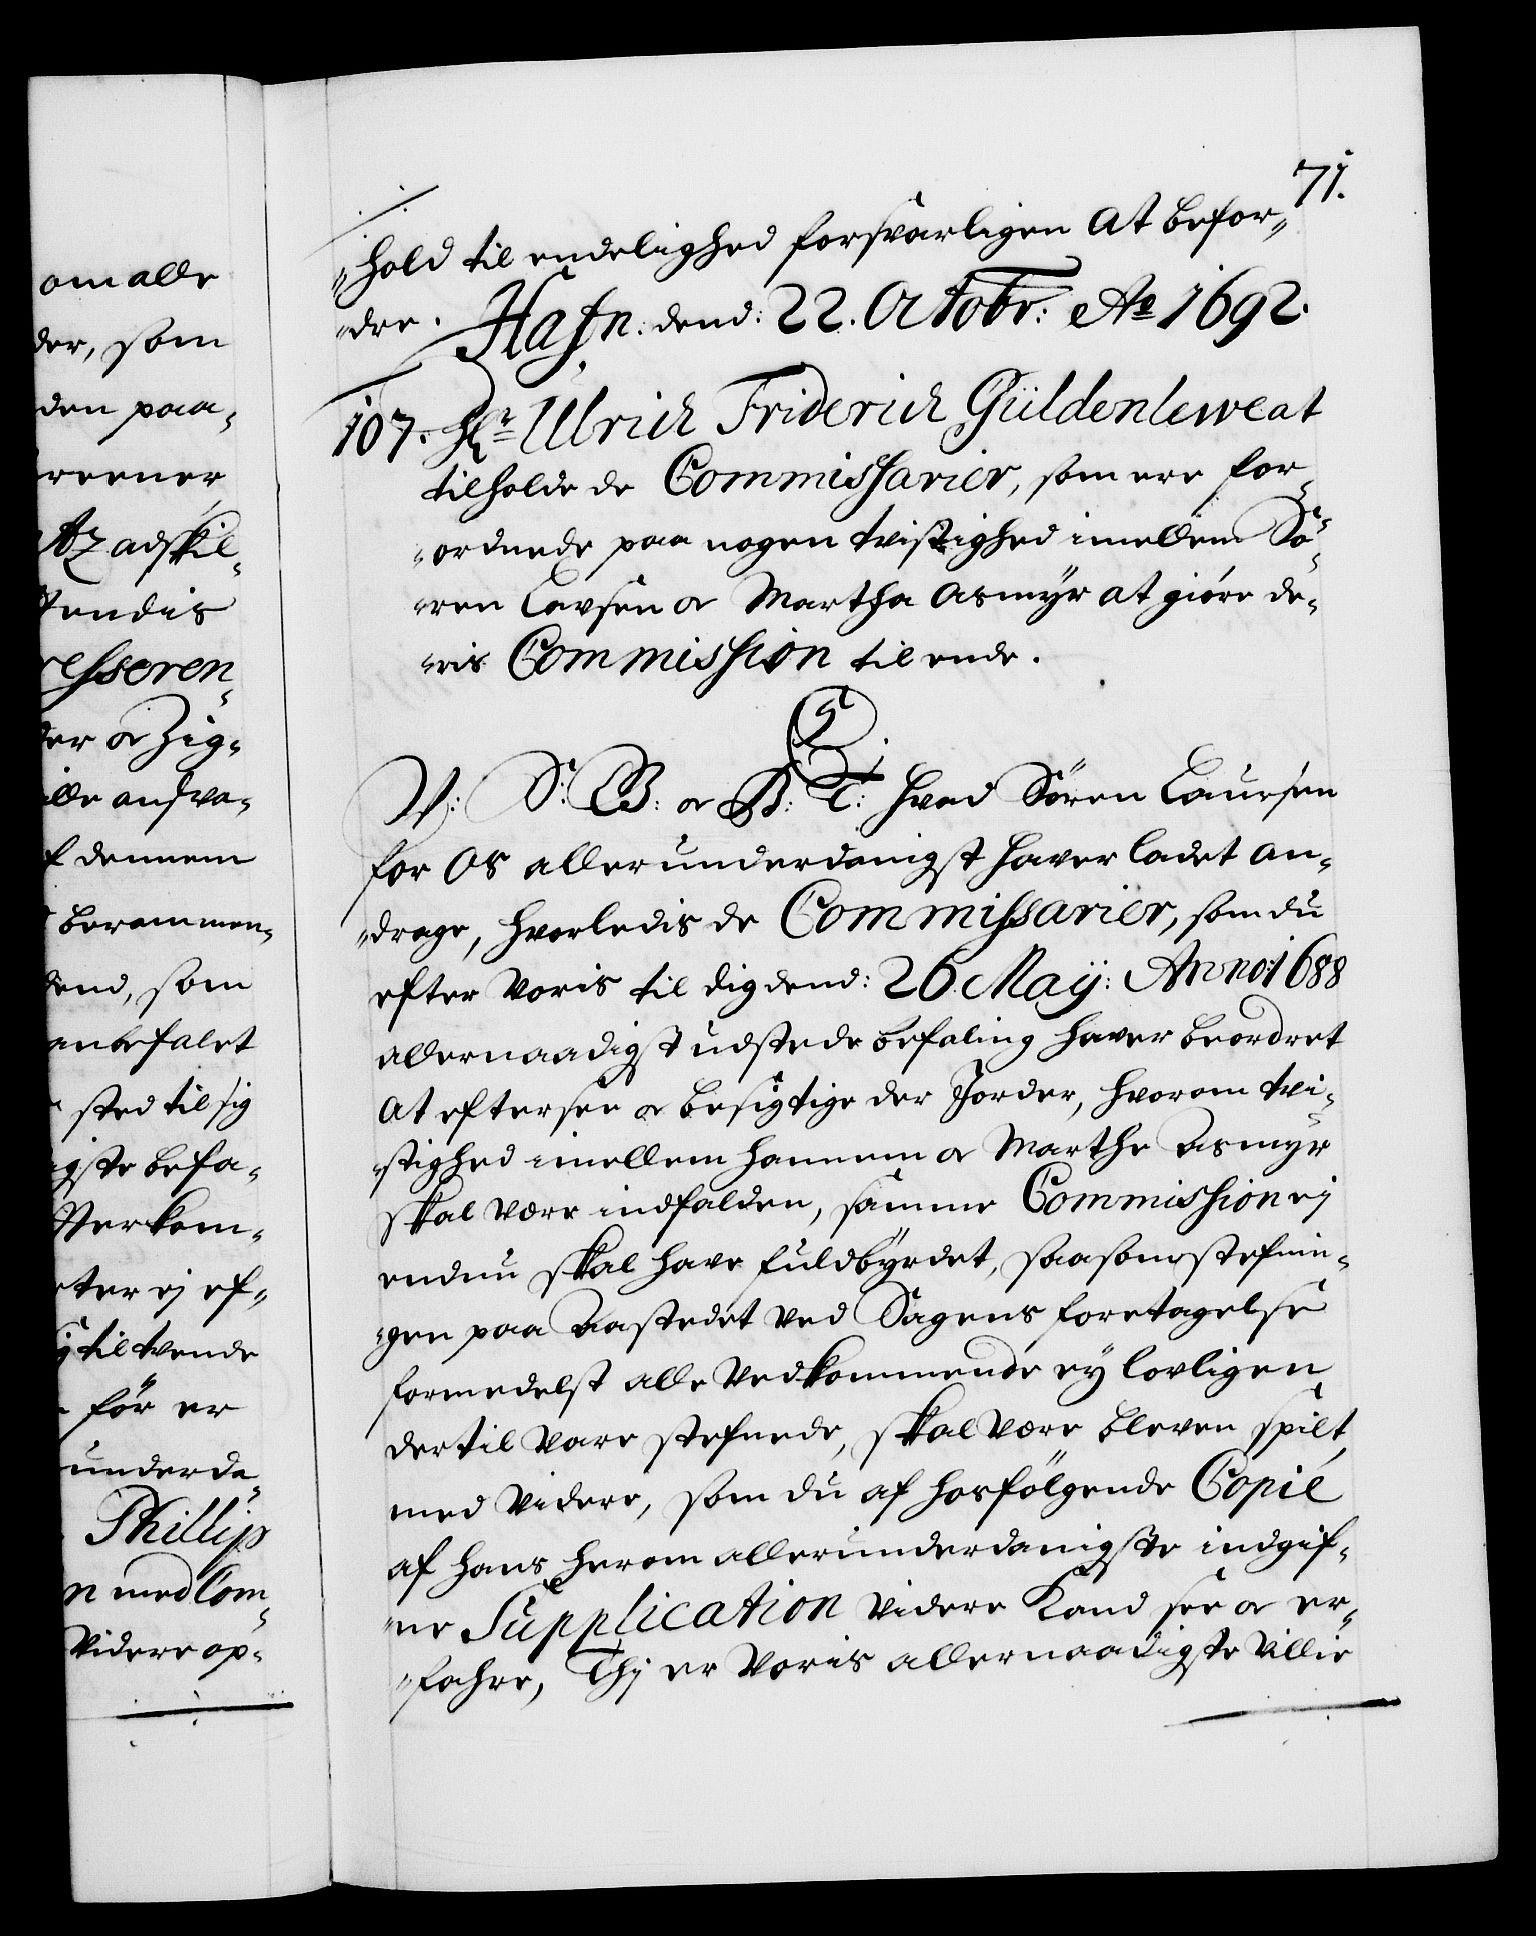 om alle
der, som
den paa-
reener
Az adskil-
tendis
resseren-
der oc Zig-
ille ansva-
f dennem
berammen-
dend, som
anbefalet
sted til sig
igste befa-
Vterkom-
eter ej ef-
j til tvende
för er
underda-
Phillip
n med Com-
videre op-
71.
"hold til endelighed forsvarligen at befor"
"dre. Hafn: dend: 22. Octobr: Aº 1692.
107. Hr Ulrich Friderich Güldenlewe at
tilholde de Commissarier, som ere for-
"ordnede paa nogen tvistighed imellem Sö-
"ren Lavsen oc Martha Asmyr at giöre de-
"ris Commission til ende.
C5
V: S: G B: oc B: T: hvad Sören Laursen
for Os allerunderdanigst haver ladet an-
"drage, hvorledis de Commissarier, som du
efter Voris til dig dend: 26. Maÿ: Anno: 1688
allernaadigst udstede befaling haver beordret
at eftersee oc besigtige der Jorder, hvorom tvi-
"stighed imellem hannem oc Marthe Aasmyr
skal være indfalden, samme Commission ej
endnu skal have fuldbyrdet, saasom stefnin-
"gen paa Aastedet ved Sagens foretagelse
formedelst alle Vedkommende ey lovligen
dertil vare stefnede, skal være bleven spilt,
med videre, som du af hosfölgende Copie
af hans herom allerunderdanigste indgif-
"ne Supplication videre Kand see oc er-
"fahre, Thj er Voris allernaadigste Villie